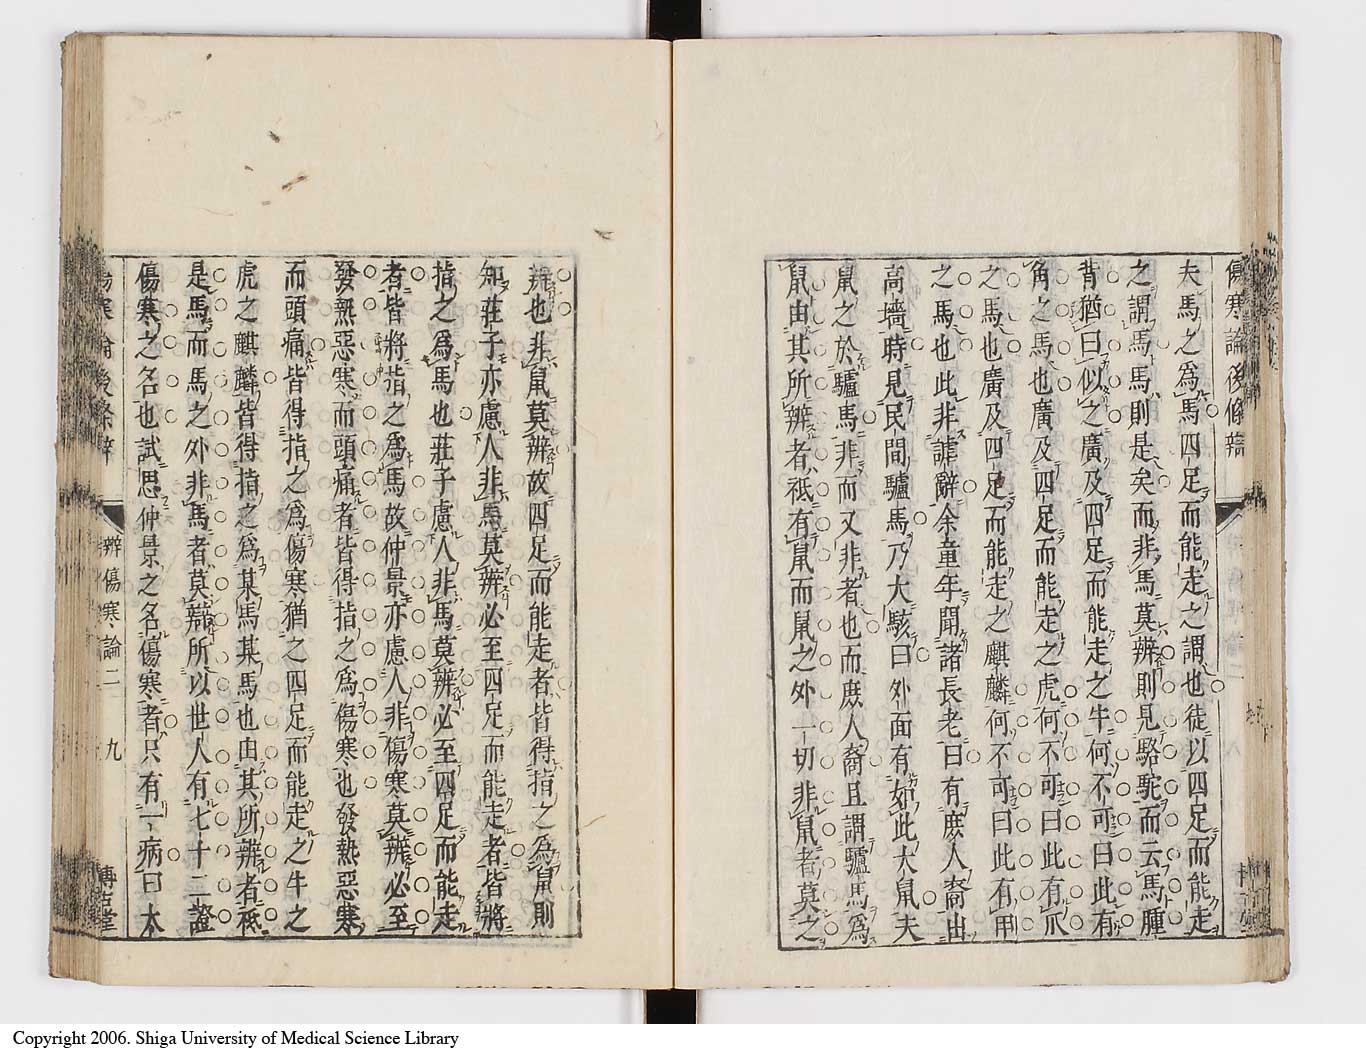 傷寒論後條辯
夫馬之爲馬四足而能走之謂也徒以四足而能走
之謂馬馬則是矣而非馬莫辨則見駱駝而云馬腫
背猶曰似之廣及四足而能走之牛何不可曰此有
角之馬也廣及四足而能走之虎何不可曰此有爪
之馬也廣及四足而能走之麒麟何不可曰此有甲
之馬也此非謔辭余童年聞諸長老曰有庶人裔出
高墻時見民間驢馬乃大駭曰外面有如此大鼠夫
鼠之於驢馬非而又非者也而庶人裔且謂驢馬爲
鼠由其所辨者祇有鼠而鼠之外一切非鼠者莫之
辨也非鼠莫辨故四足而能走者皆得指之爲鼠則
知莊子亦慮人非馬莫辨必至四足而能走者皆將
指之爲馬也莊子慮人非馬莫辨必至四足而能走
者皆將指之爲馬故仲景亦慮人非傷寒莫辨必至
發熱惡寒而頭痛者皆得指之爲傷寒也發熱惡寒
而頭痛皆得指之爲傷寒猶之四足而能走之牛之
虎之麒麟皆得指之爲某馬某馬也由其所辨者祗
是馬而馬之外非馬者莫辯所以世人有七十二證
傷寒之名也試思仲景之名傷寒者只有一病曰太
傷寒論後條辨
辨傷寒論二
九
博古堂
Copyright 2006. Shiga University of Medical Science Library